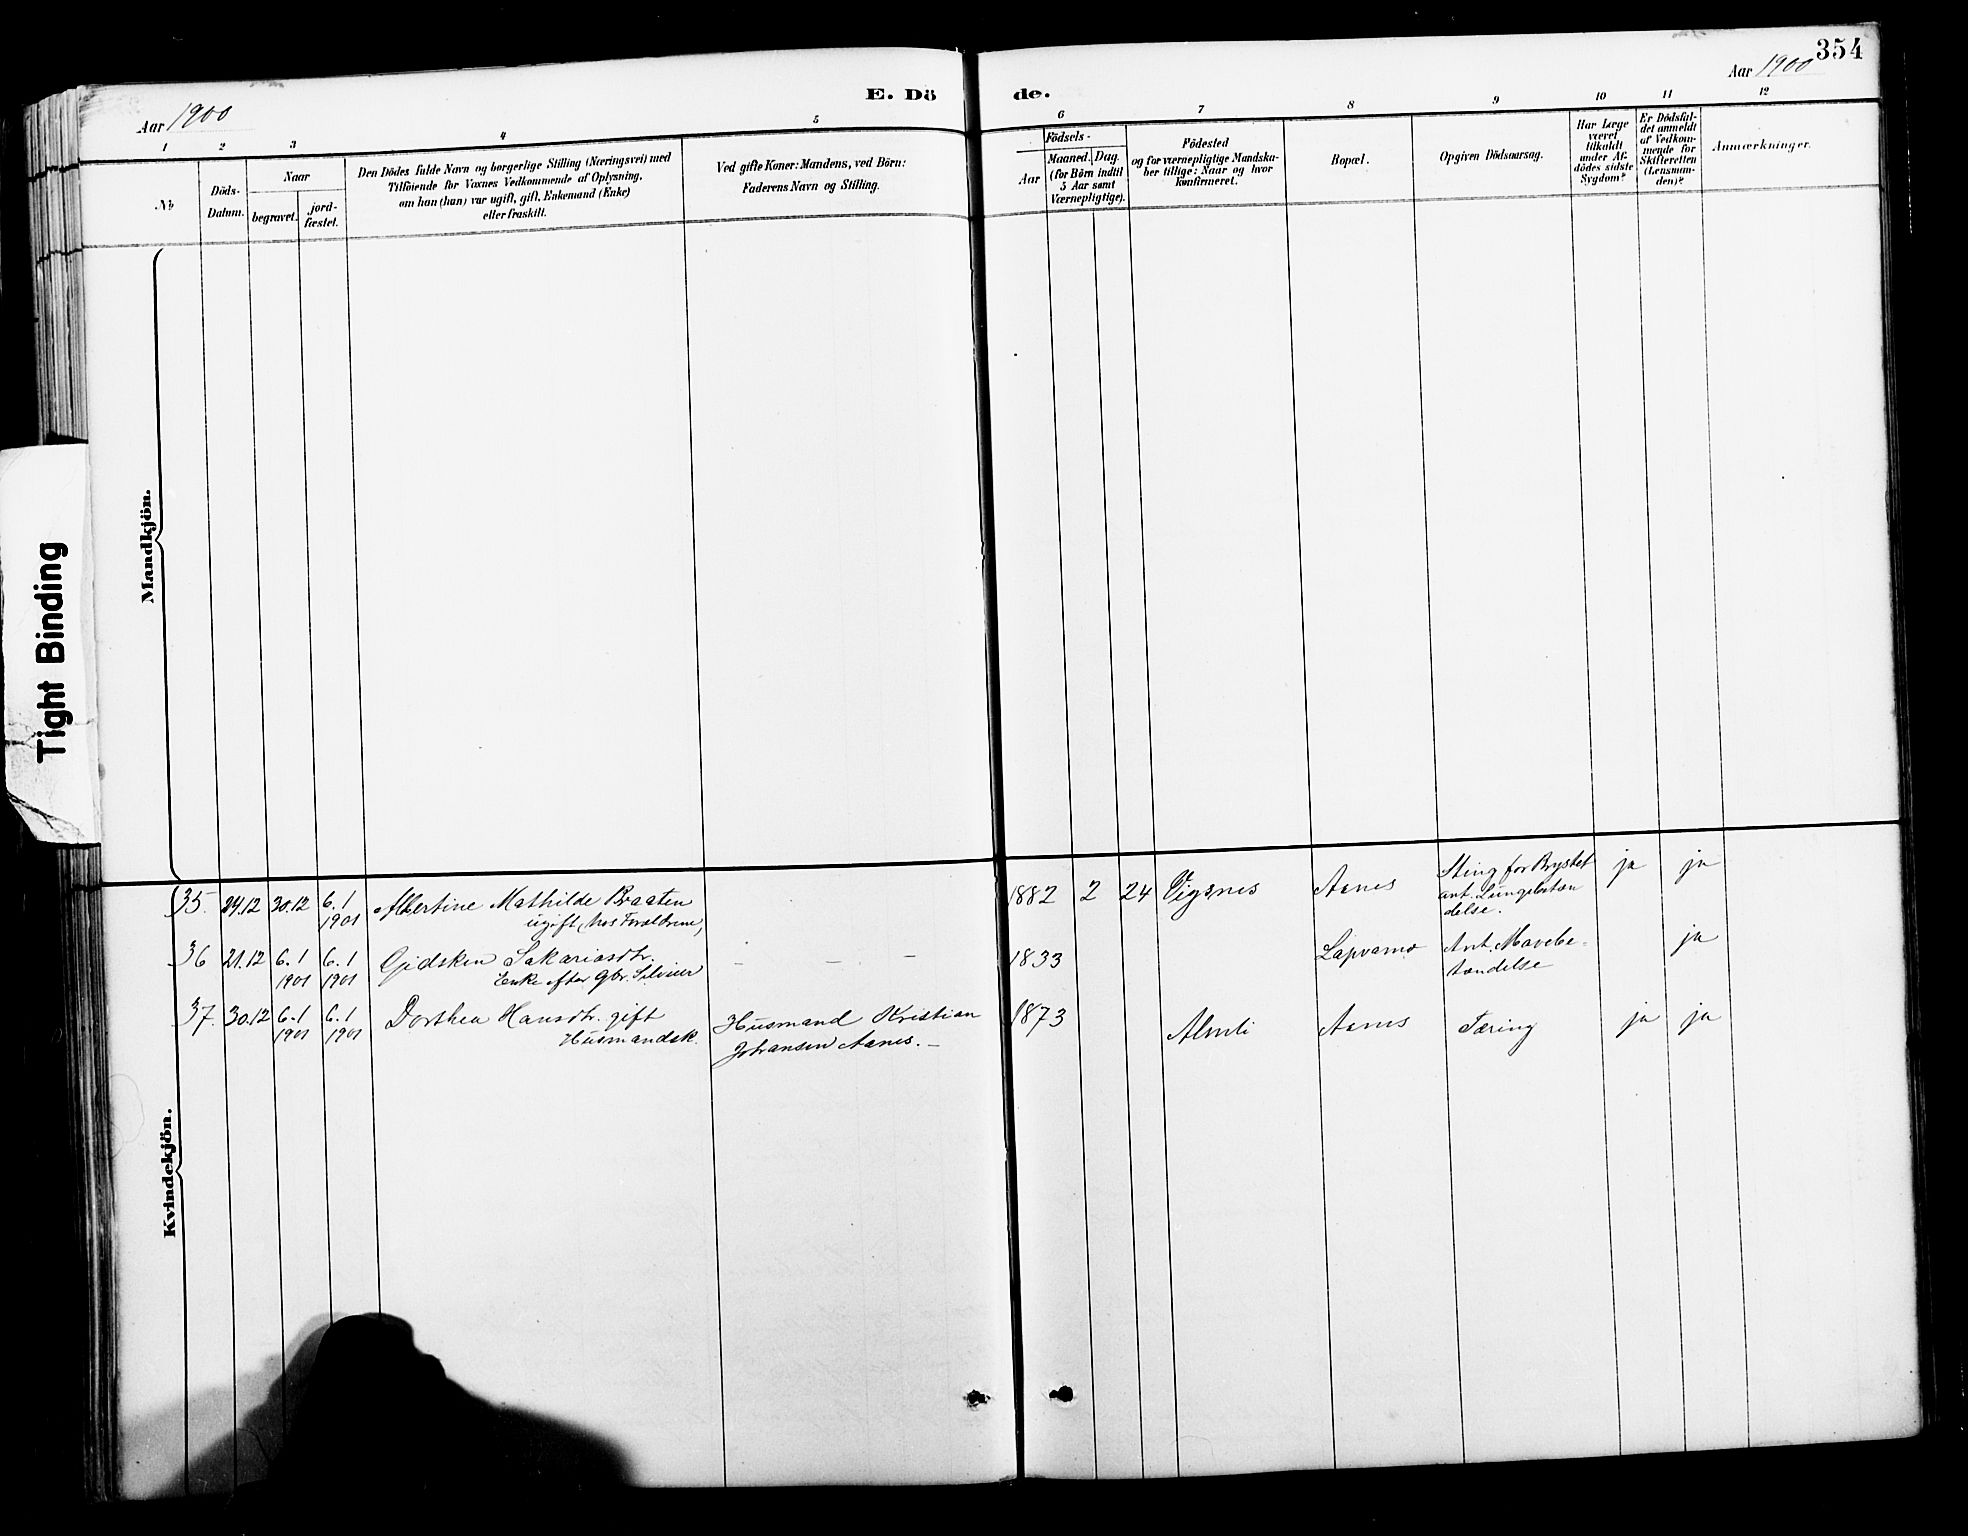 354
E. Döde.
Aar 1900
Aar 1900
1 2 3 4 5 6 7 8 9 10 11 12
No
Döds-
Datum.
Naar
begravet.
jord-
fæstet.
Den Dödes fulde Navn og borgerlige Stilling (Næringsvei) med
Tilföiende for Voxnes Vedkommende af Oplysning,
om han (hun) var ugift, gift, Enkemand (Enke)
eller fraskilt.
Ved gifte Koner: Mandens, ved Börn:
Faderens Navn og Stilling.
Födsels-
Aar
Maaned. Dag.
(for Börn indtil
5 Aar samt
Værnepligtige).
Födested
og for værnepligtige Mandska-
ber tillige: Naar og hvor
Konfirmeret.
Bopæl.
Opgiven Dödsaarsag.
Har Læge
været
tilkaldt
under Af-
dödes sidste
Sygdom?
Er Dödsfal-
det anmeldt
af Vedkom-
mende for
Skifteretten
(Lensman-
den)?
Anmærkninger.
Mandkjön.
Tight Binding
Kvindekjön.
35. 24.12 30.12 6.1 1901 Albertine Mathilde Braaten
ugift, hos Forældrene,
1882 2 24 Vigsnes Aanes Sting for Brystet
ant. Lungebetæn
delse.
ja ja
36 21.12 6.1 1901 6.1 1901 Gjidsken Sakariasdtr.
Enke efter Gbr.
- - -
1833 Lapvamo Ant. Mavebe-
tændelse
ja
37. 30.12 6.1 1901 6.1 1901 Dorthea Hansdtr. gift
Husmandsk.
Husmand Kristian
Johansen Aanes. -
1873 Almli Aanes Tæring ja ja